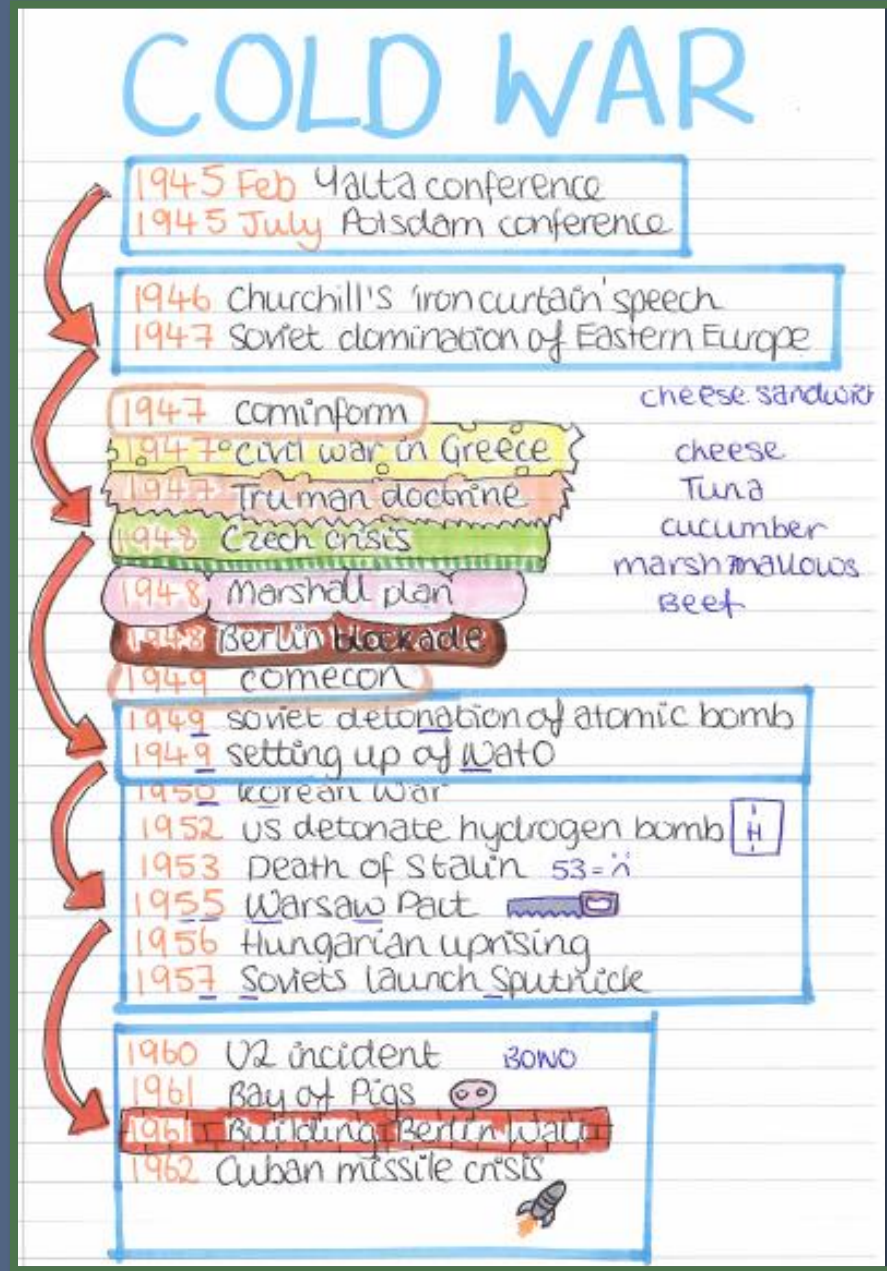 COLD WAR
1945 Feb Yalta conference
1945 July Potsdam conference
1946 Churchill's 'iron curtain' speech
1947 Soviet domination of Eastern Europe
1947 cominform
1947 civil war in Greece
1947 Truman doctrine
1948 Czech crisis
1948 Marshall plan
1948 Berlin blockade
1949 comecon
cheese sandwich
cheese
Tuna
cucumber
marshmallows
Beef
1949 soviet detonation of atomic bomb
1949 setting up of NatO
1950 korean war
1952 US detonate hydrogen bomb H
1953 Death of Stalin 53=
1955 Warsaw Pact
1956 Hungarian uprising
1957 Soviets launch Sputnick
1960 U2 incident BONO
1961 Bay of Pigs
1961 Building Berlin Wall
1962 Cuban missile crisis